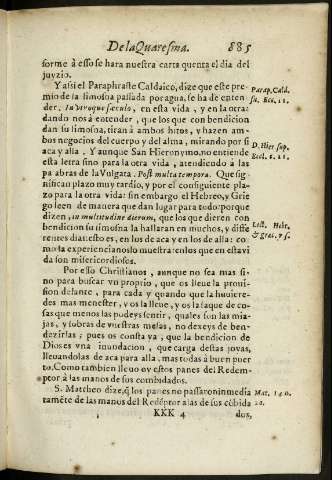 De la Quaresma. 885
forme à esso se hara nuestra carta quenta el dia del
juyzio.
Y assi el Paraphraste Caldaico, dize que este pre-
mio de la limosna passada por agua, se ha de enten
der, In vtroque sæculo, en esta vida, y en la otra:
dando nos à entender, que los que con bendicion
dan su limosna, tiran à ambos hitos, y hazen am-
bos negocios del cuerpo y del alma, mirando por si
aca y alla. Y aunque San Hieronymo, no entiende
esta letra sino para la otra vida, atendiendo à las
pa abras de la Vulgata. Post multa tempora. Que sig-
nifican plazo muy tardio, y por el consiguiente plazo
para la otra vida: sin embargo el Hebreo, y Grie
go leen de manera que dan lugar para todo: porque
dizen, in multitudine dierum, que los que dieren con
bendicion su limosna la hallaran en muchos, y diffe
rentes dias: esto es, en los de aca y en los de alla: co-
mo la experiencia nos lo muestra: en los que en esta vi
da son misericordiosos.
Por esso Christianos, aunque no sea mas si-
no para buscar vn proprio, que os lleue la proui-
sion delante, para cada y quando que la huuiere-
des mas menester, y os la lleue, y os la saque de co-
sas que menos las podeys sentir, quales son las mia-
jas, y sobras de vuestras mesas, no dexeys de ben-
dezirlas; pues os consta ya, que la bendicion de
Dios es vna inundacion, que carga destas joyas,
lleuandolas de aca para alla, mas todas à buen puer
to. Como tambien lleuo ov estos panes del Redem-
ptor à las manos de sus combidados.
S. Mattheo dize, q̃ los panes no passaron inmedia
tamẽte de las manos del Redẽptor a las de sus cõbida
KKK 4 dos,
Parap. Cald.
su. Ecl. 11.
D. Hier. sup.
Eccl. c. 11.
Lect. Hebr.
& græc. v. s.
Mat. 14. n.
20.